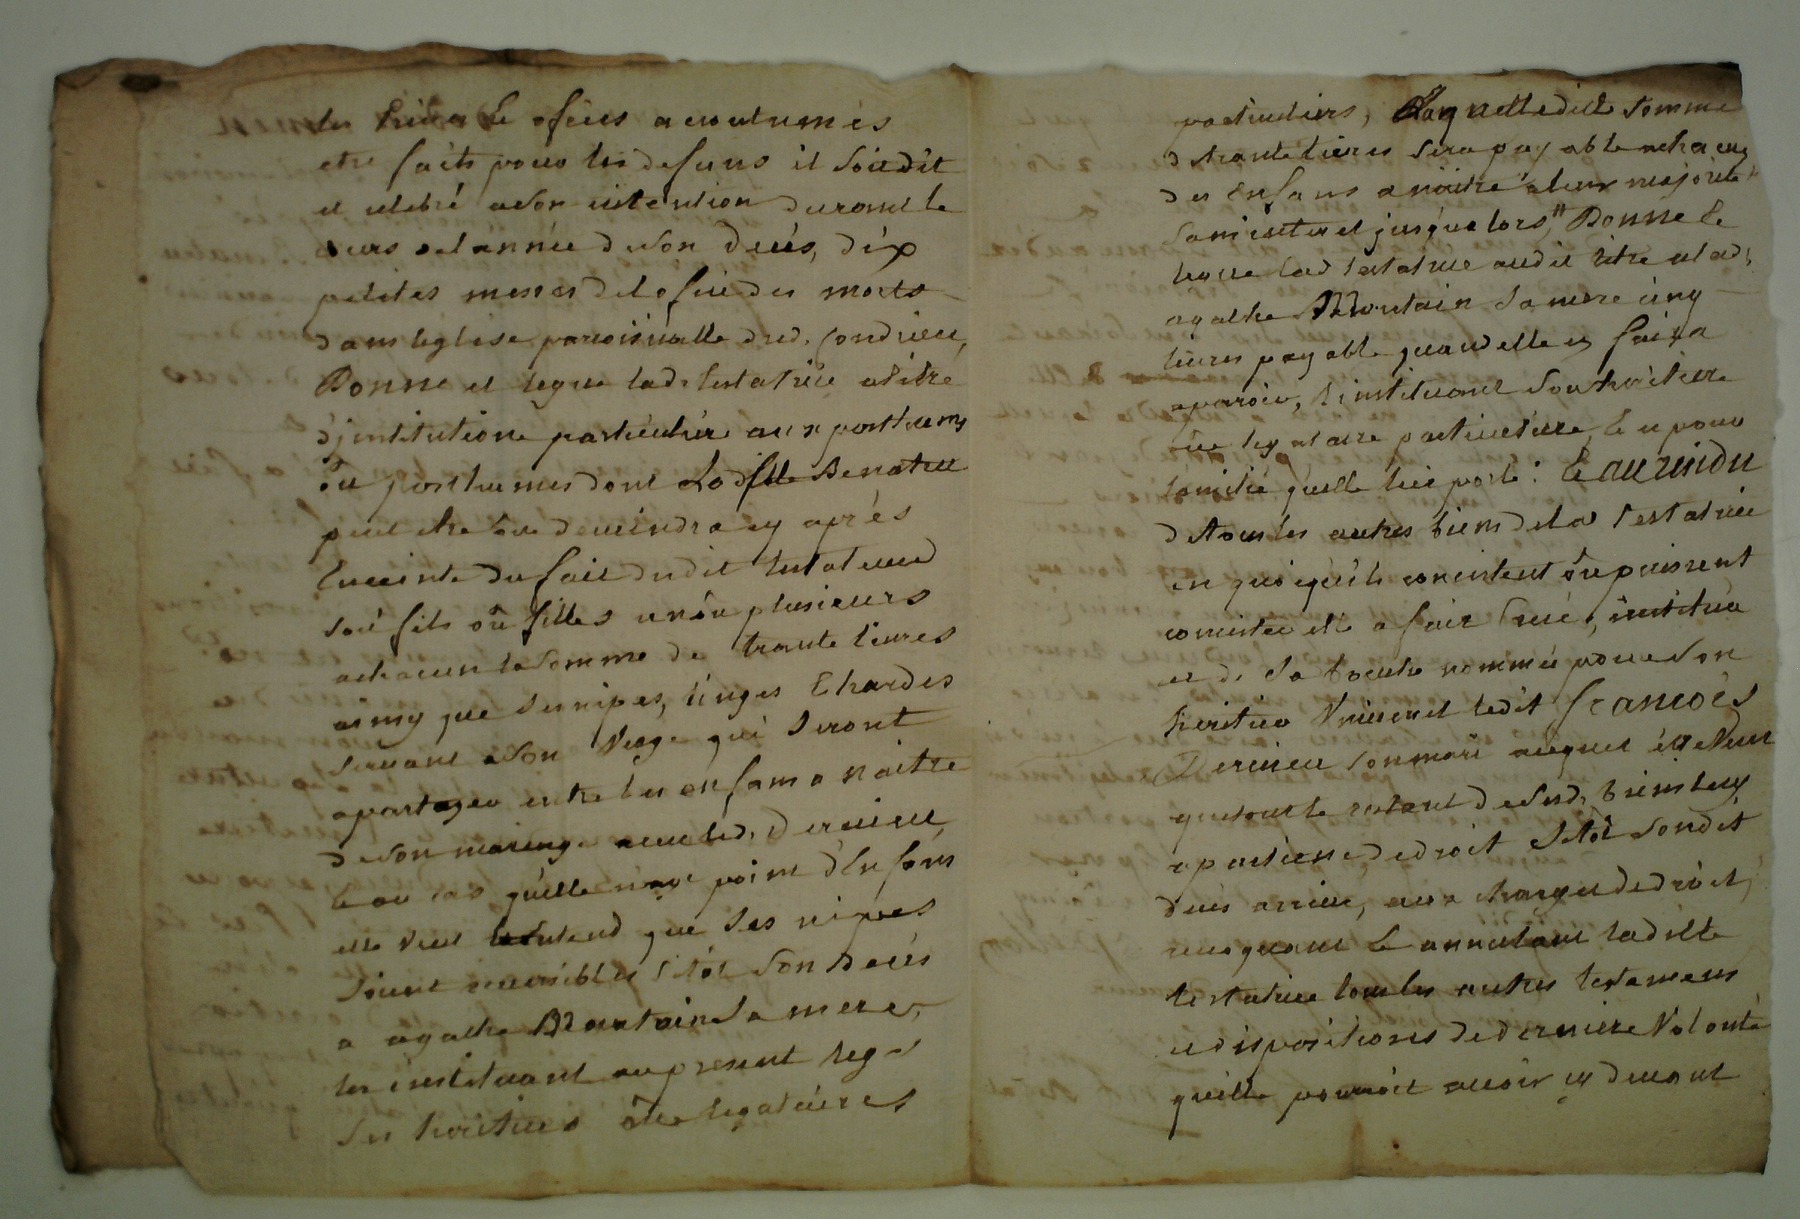 les prieres & ofices acoutumés
etre faits pour les defuns il soit dit
et celebré a son intention durant le
cours de l'année de son decés, dix
petites messes de l'ofice des morts
dans l'eglise paroissialle dud. Condrieu,
Donne et legue lad. testatrice a titre
d'jnstitution particuliere aux posthumes
ou posthumes dont Ladite Benatru
peut etre ou deviendra cy aprés
Enceinte du fait dudit testateur
soit fils oû filles un ôu plusieurs
a chacun la somme de trante livres
ainsy que ses nipes, linges & hardes
servant a son usage qui seront
a partager entre les enfans a naitre
de son mariage avec led. Dervieu,
& au cas qu'elle n'aye point d'Enfans
elle veut & entend que ses nipes
soient reversibles sitôt son decés
a agathe Montain sa mere,
les instituant au present legs
ses heritiers ôu legataires
particuliers, Laquelle dite somme
de trante livres sera payable a chacun
des Enfans a naitre a leur majorité
sans interet jusque lors, Donne &
legue lad. testatrice audit titre a lad.
agathe Montain sa mere cinq
livres payable quand elle en faira
aparoir, l'instituant son heritiere
ou legataire particuliere, & pour
l'amitié qu'elle luy porte: & au residu
de tous les autres biens de la testatrice
en quoi qu'ils consistent ôu puissent
consister elle a fait, creé, institué
et de sa bouche nommé pour son
heritier Universel ledit françois
Dervieu son mari auquel elle veut
que tout le restant de sesd. biens luy
apartiene de droit sitôt sondit
decés arrivé, aux charges de droit,
revoquant & annulant ladite
testatrice tous les autres testamens
et dispositions de derniere Volonté
qu'elle pourroit avoir cy devant